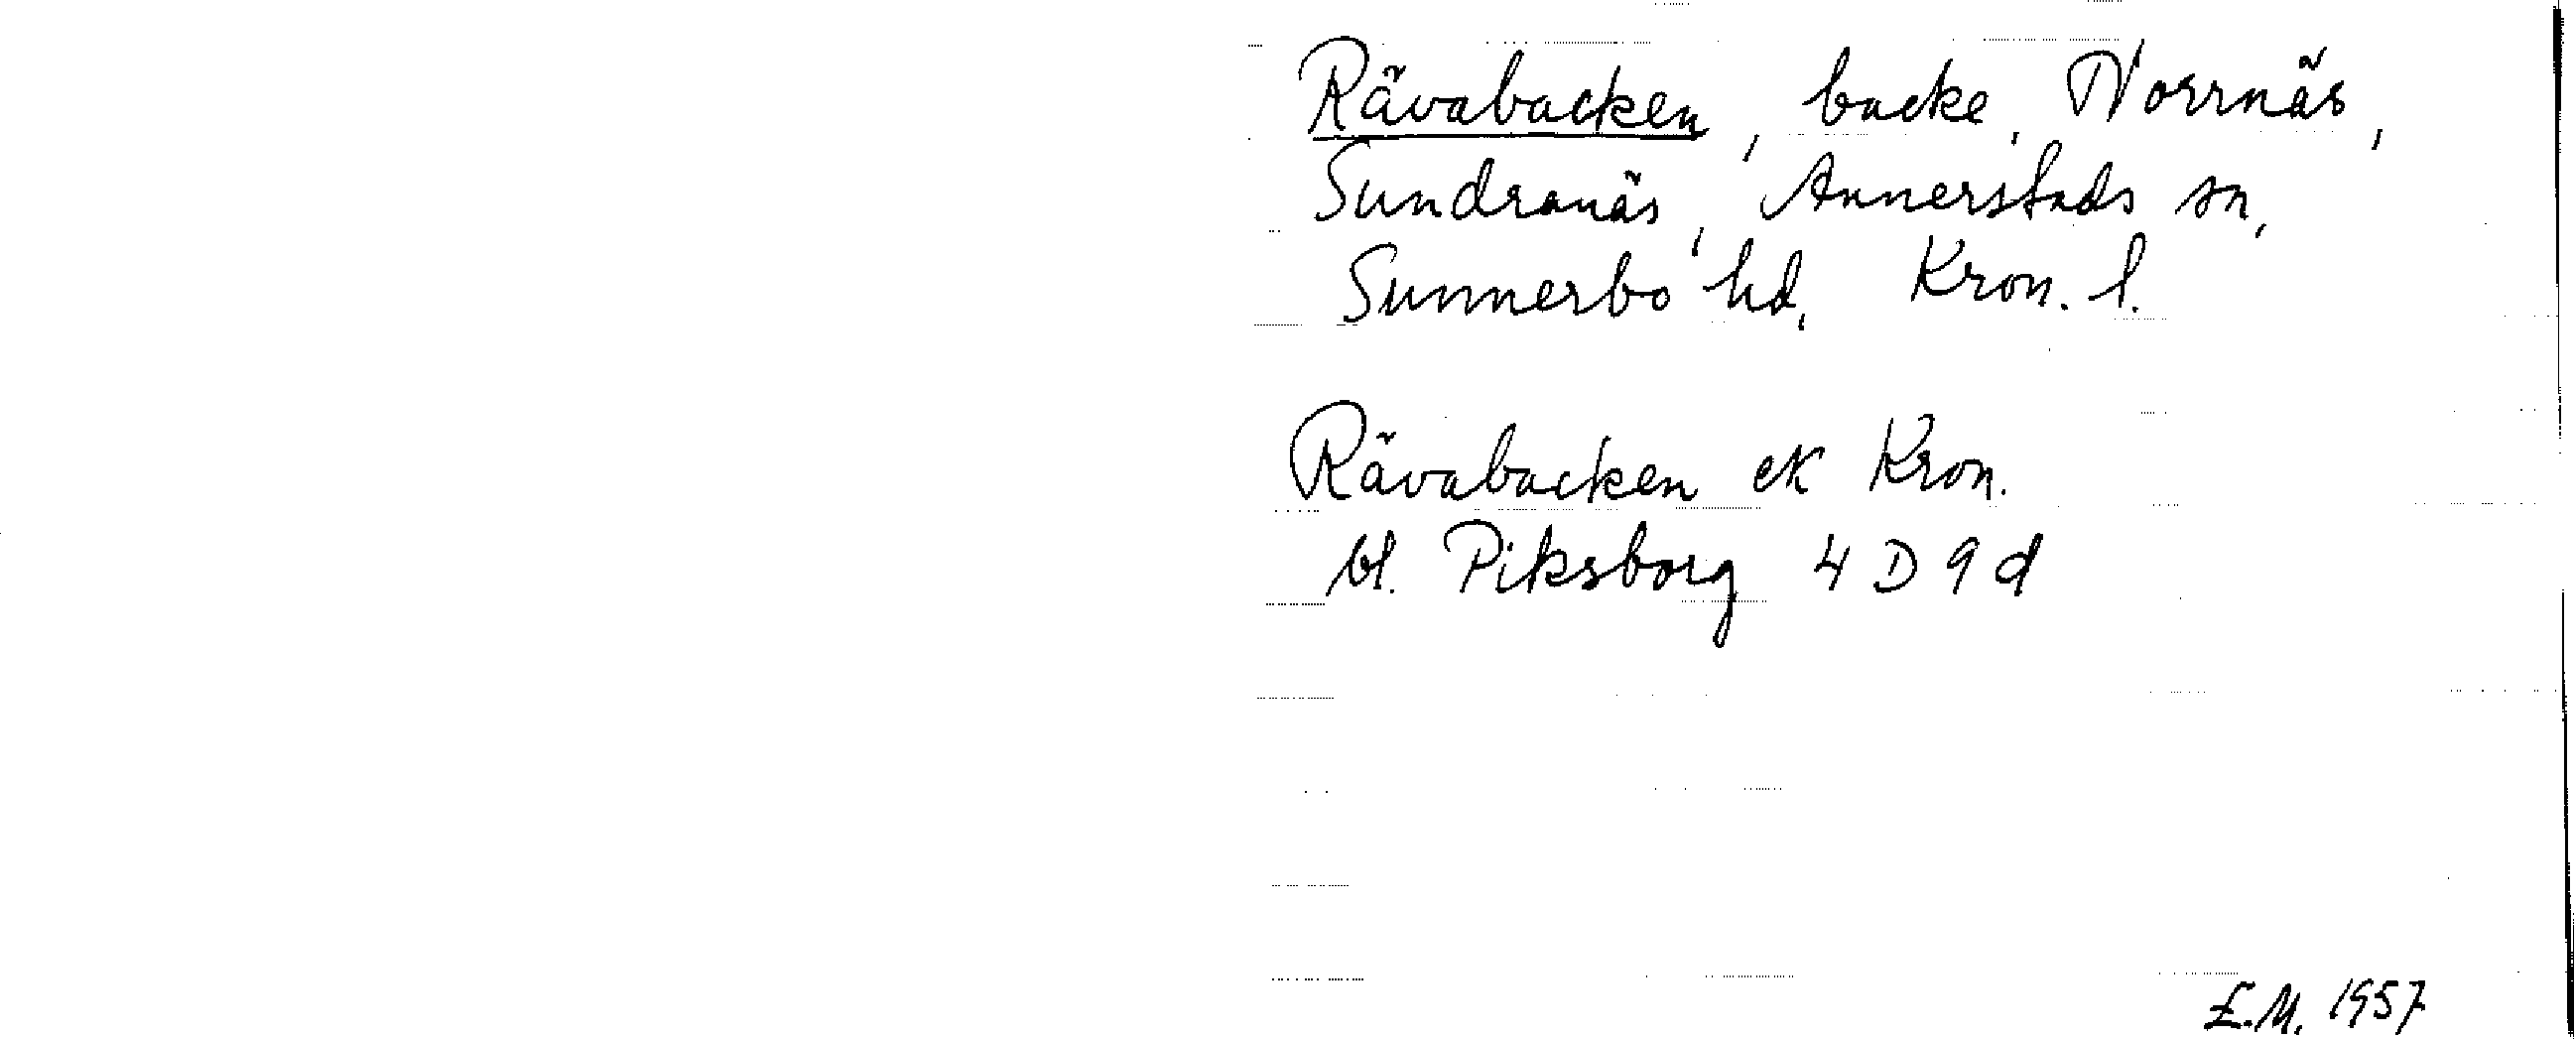 Rävabacken, backe, Norrnäs,
Sundranäs, Annerstads sn,
Sunnerbo hd, Kron. l.
Rävabacken ek Kron.
bl. Piksborg 4 D 9 d
E.M. 1957